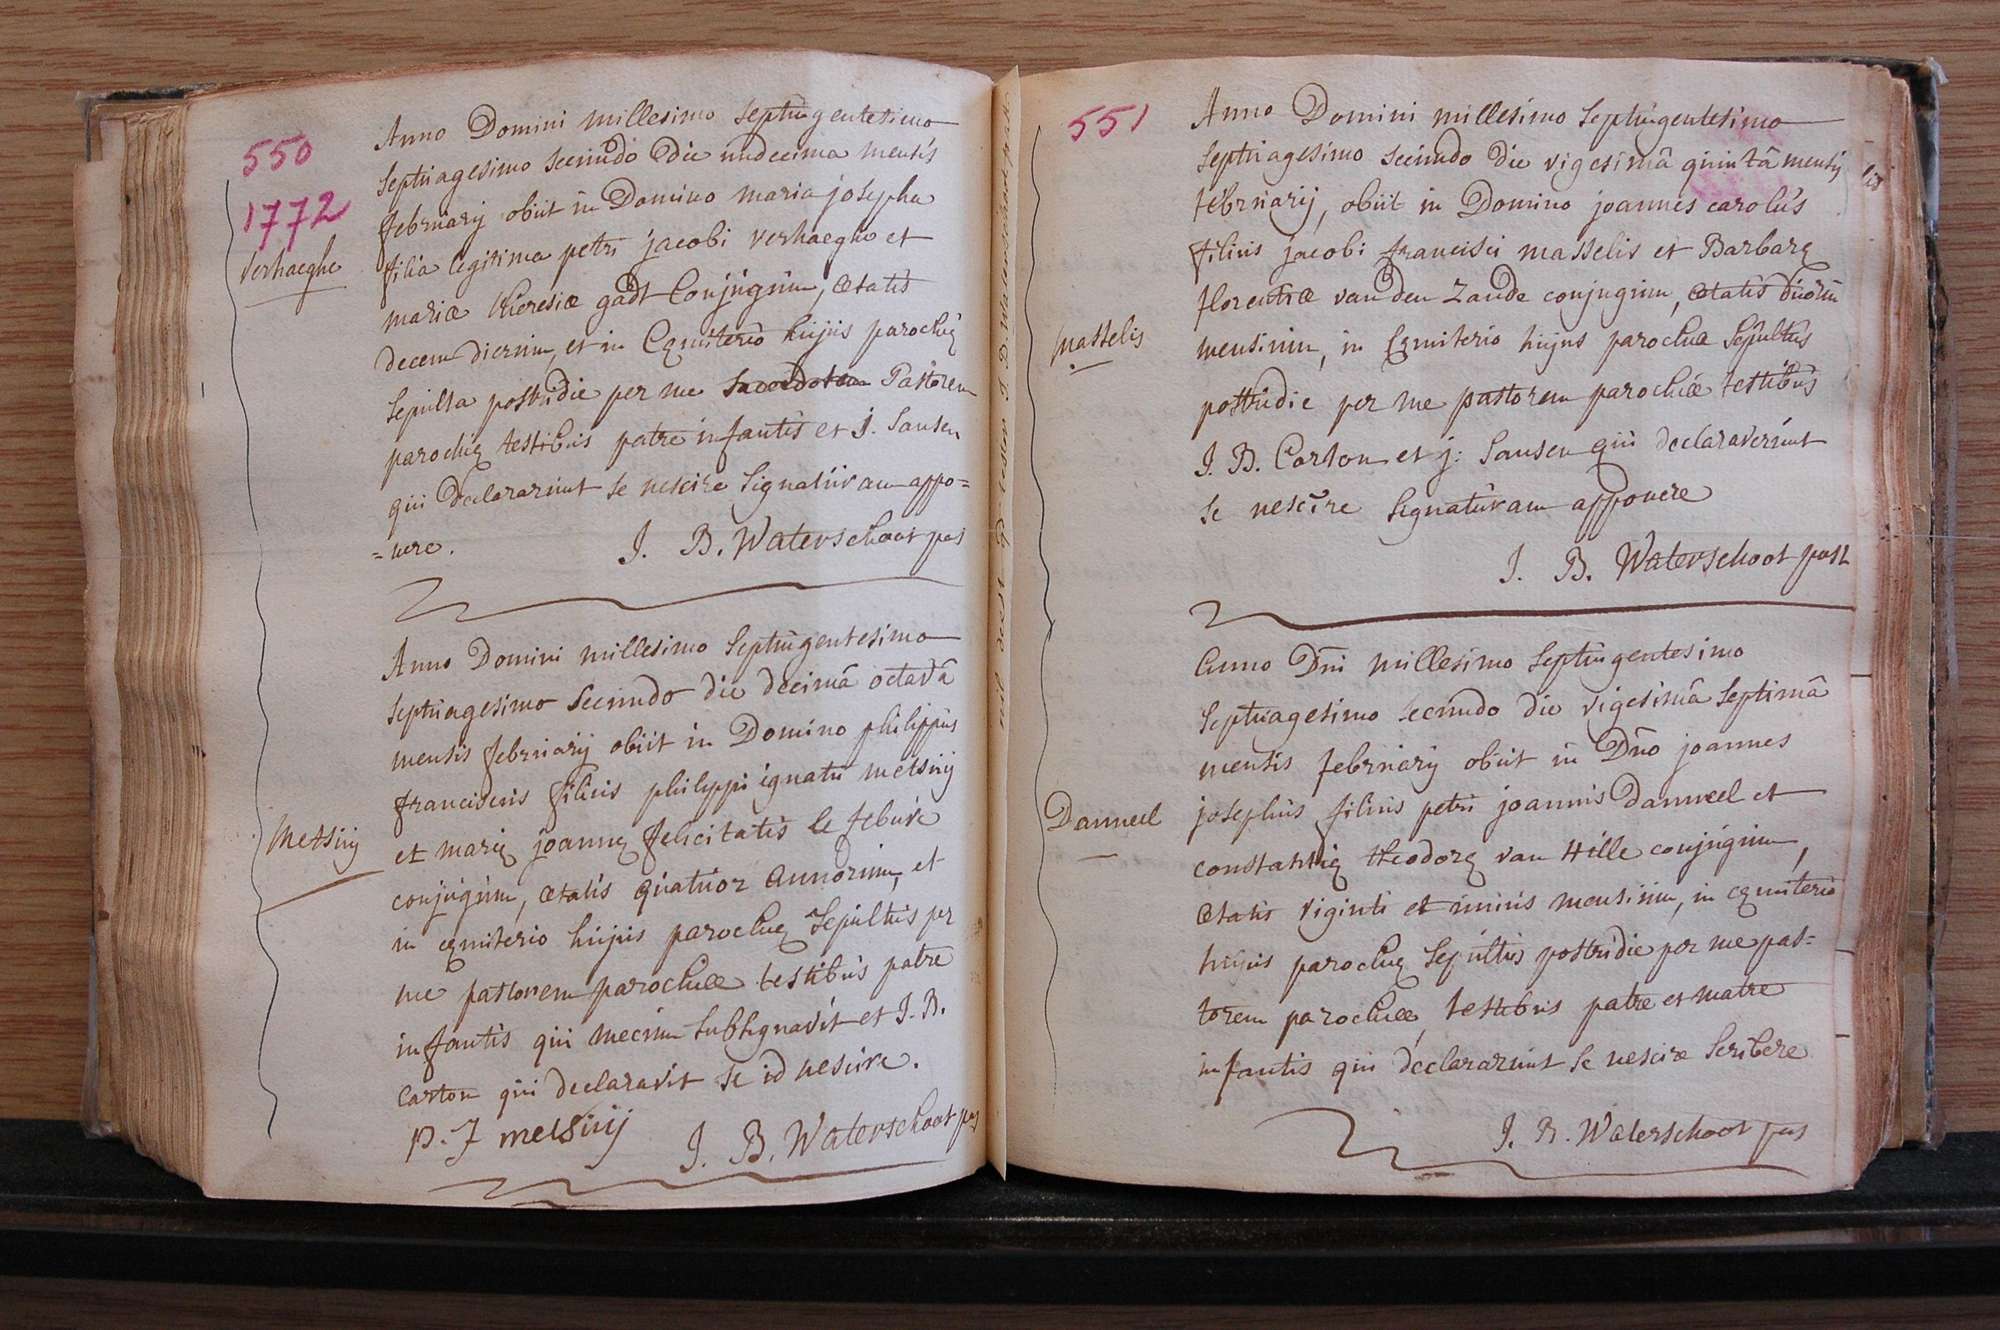 550
1772
Verhaeghe
Anno Domini millesimo Septingentesimo
Septuagesimo secundo die undecima mensis
februarij obiit in Domino maria josepha
filia legitima petri jacobi verhaeghe et
mariæ theresiæ gadt Conjugum, ætatis
decem dierum, et in Cęmiterio hujus parochię
Sepulta postridie per me Sacerdotem Pastorem
parochię testibus patre infantis et j. Sansen
qui declararunt se nescire Signaturam appo=
=nere.
J. B. Waterschoot pas
Metsuij
Anno Domini millesimo Septingentesimo
Septuagesimo Secundo die decimâ octavâ
mensis februarij obiit in Domino philippus
franciscus filius philippi ignatii metsuij
et marię joannę felicitatis le febure
conjugum, ætatis quatuor annorum, et
in cęmiterio hujus parochię Sepultus per
me pastorem parochiæ testibus patre
infantis qui mecum Subsignavit et J. B.
Carton qui declaravit se id nescire.
p. J metsuij
J. B. Waterschoot pas
551
Masselis
Anno Domini millesimo Septingentesimo
Septuagesimo secundo die vigesimâ quintâ mensis
februarij, obiit in Domino joannes carolus
filius jacobi francisci masselis et Barbarę
florentiæ van den Zande conjugum, ætatis duorum
mensium, in Cęmiterio hujus parochiæ Sepultus
postridie per me pastorem parochiæ testibus
J. B. Carton et j: Sansen qui declaraverunt
se nescire Signaturam apponere
J. B. Waterschoot past
Danneel
Anno Dni millesimo Septingentesimo
Septuagesimo secundo die vigesimâ Septimâ
mensis februarij obiit in Dno joannes
josephus filius petri joannis Danneel et
constantię theodorę van Hille conjugum,
ætatis viginti et unius mensium, in cęmiterio
hujus parochię Sepultus postridie per me pas=
torem parochiæ, testibus patre et matre
infantis qui declararunt se nescire Scribere
J. B. Waterschoot pas